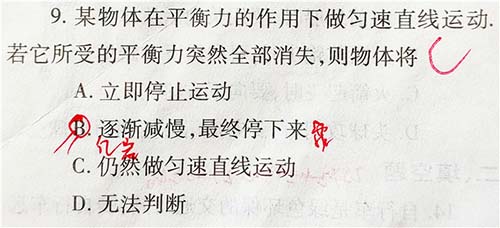 9. 某物体在平衡力的作用下做匀速直线运动.
若它所受的平衡力突然全部消失,则物体将 C
A. 立即停止运动
B. 逐渐减慢,最终停下来
C. 仍然做匀速直线运动
D. 无法判断
二、填空题